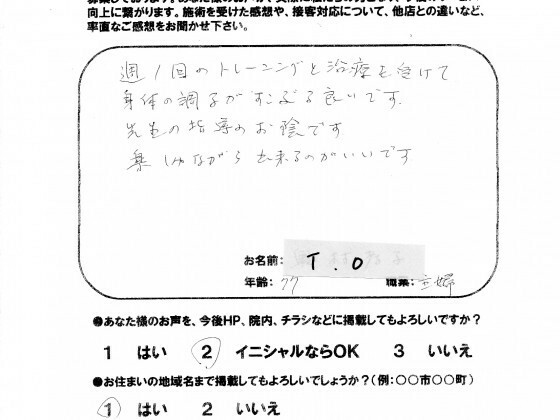 向上に繋がります。施術を受けた感想や、接客対応について、他店との違いなど、
率直なご感想をお聞かせ下さい。
週1回のトレーニングと治療を受けて
身体の調子がすこぶる良いです.
先生の指導のお陰です
楽しみながら出来るのがいいです
お名前: T.O
年齢: 77 職業: 主婦
●あなた様のお声を、今後HP、院内、チラシなどに掲載してもよろしいですか?
1 はい 2 イニシャルならOK 3 いいえ
●お住まいの地域名まで掲載してもよろしいでしょうか?(例:〇〇市〇〇町)
1 はい 2 いいえ